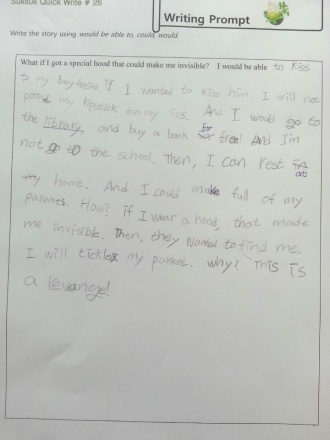 Quick Write # 26
Writing Prompt
Write the story using would be able to, could, would.
What if I got a special hood that could make me invisible? I would be able to kiss
to my boyfriend if I wanted to kiss him. I will not
my lipstick on my lips. And I would go to
the library, and buy a book for free! And I'm
not go to the school. Then, I can rest at
my home. And I could make full of my
parents. How? if I wear a hood, that made
me invisible. Then, they wanted to find me.
I will tickle my parent. why? This is
a revange!